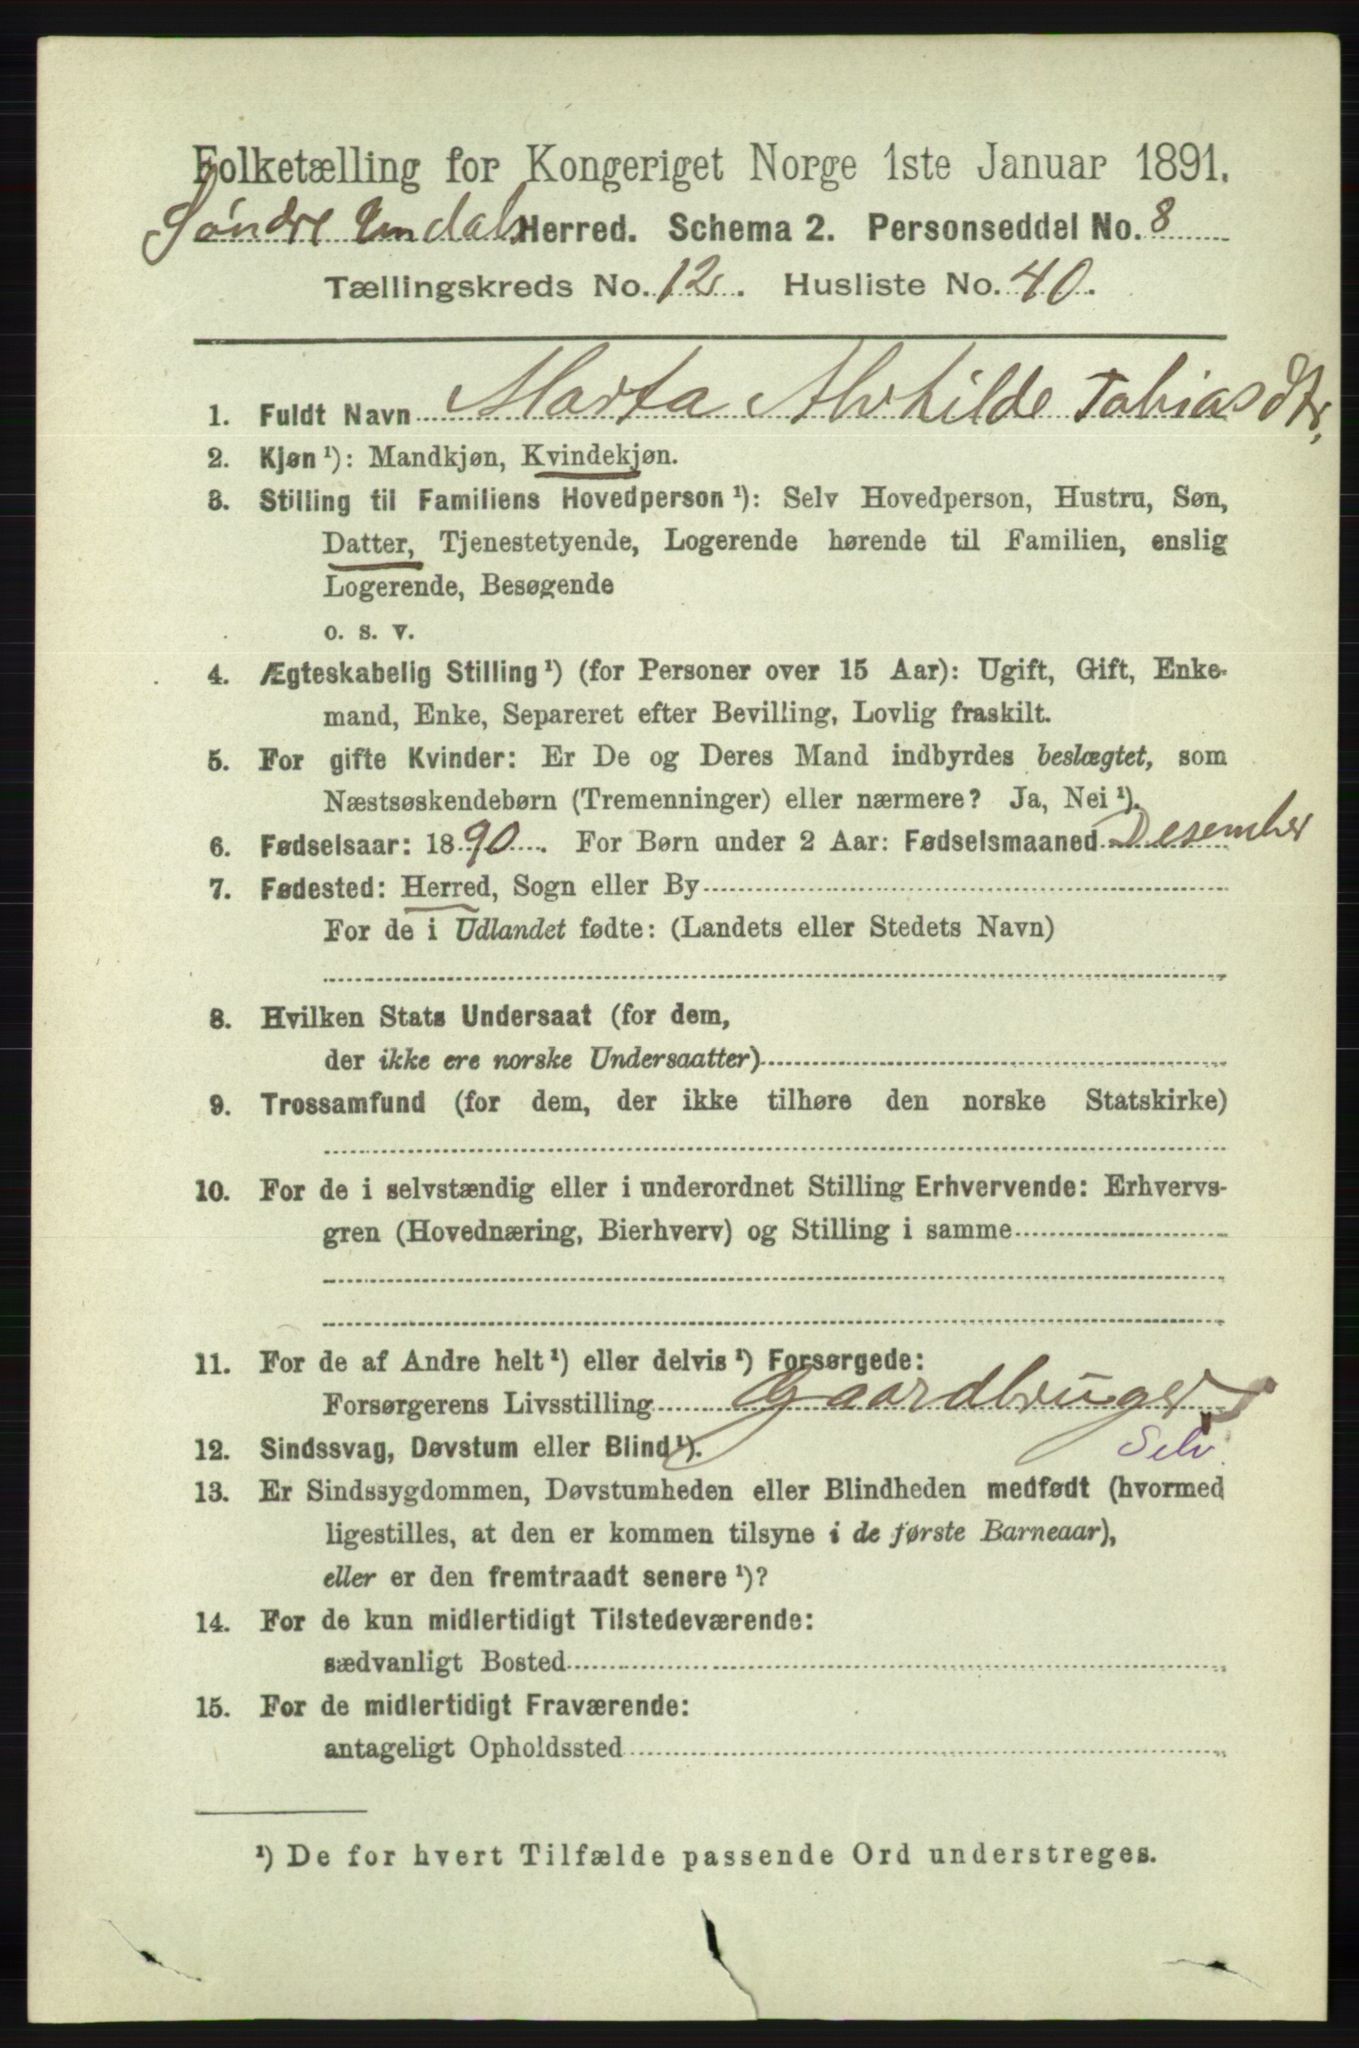 Folketælling for Kongeriget Norge 1ste Januar 1891.
Søndre Undals Herred. Schema 2. Personseddel No. 8
Tællingskreds No. 12. Husliste No. 40.
1. Fuldt Navn Marta Alvhilde Tobiasdtr,
2. Kjøn ¹): Mandkjøn, Kvindekjøn.
3. Stilling til Familiens Hovedperson ¹): Selv Hovedperson, Hustru, Søn,
Datter, Tjenestetyende, Logerende hørende til Familien, enslig
Logerende, Besøgende
o. s. v.
4. Ægteskabelig Stilling ¹) (for Personer over 15 Aar): Ugift, Gift, Enke-
mand, Enke, Separeret efter Bevilling, Lovlig fraskilt.
5. For gifte Kvinder: Er De og Deres Mand indbyrdes beslægtet, som
Næstsøskendebørn (Tremenninger) eller nærmere? Ja, Nei ¹).
6. Fødselsaar: 1890. For Børn under 2 Aar: Fødselsmaaned Desember
7. Fødested: Herred, Sogn eller By
For de i Udlandet fødte: (Landets eller Stedets Navn)
8. Hvilken Stats Undersaat (for dem,
der ikke ere norske Undersaatter)
9. Trossamfund (for dem, der ikke tilhøre den norske Statskirke)
10. For de i selvstændig eller i underordnet Stilling Erhvervende: Erhvervs-
gren (Hovednæring, Bierhverv) og Stilling i samme
11. For de af Andre helt ¹) eller delvis ¹) Forsørgede:
Forsørgerens Livsstilling Gaardbruger
Selv.
12. Sindssvag, Døvstum eller Blind ¹).
13. Er Sindssygdommen, Døvstumheden eller Blindheden medfødt (hvormed
ligestilles, at den er kommen tilsyne i de første Barneaar),
eller er den fremtraadt senere ¹)?
14. For de kun midlertidigt Tilstedeværende:
sædvanligt Bosted
15. For de midlertidigt Fraværende:
antageligt Opholdssted
¹) De for hvert Tilfælde passende Ord understreges.